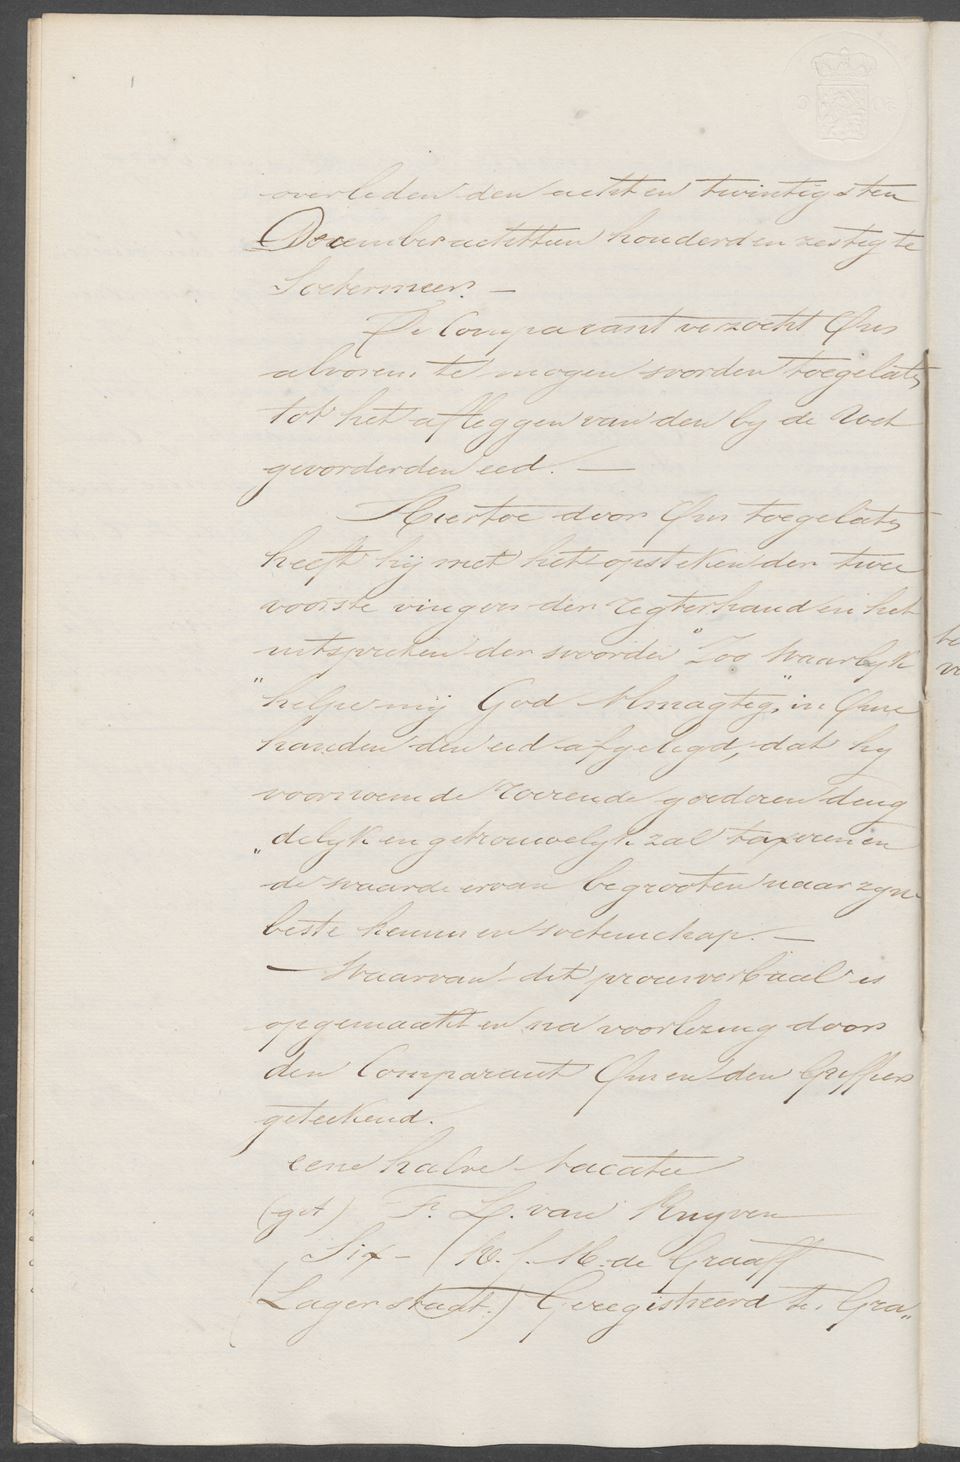 overleden den acht en twintigsten
December achttien honderd en zestig te
Soetermeer. —
De Comparant verzocht Ons
alvorens te mogen worden toegelaten
tot het afleggen van den by de Wet
gevorderden eed. —
Hiertoe door Ons toegelaten
heeft hij met het opsteken der twee
voorste vingers der regterhand en het
uitspreken der woorden "Zoo Waarlyk
"helpe mij God Almagtig," in Onze
handen den eed afgelegd, dat hy
voornoemde roerende goederen deug
"delyk en getrouwelyk zal taxeren en
de waarde ervan begrooten naar zyn
beste kennis en wetenschap. —
— Waarvan dit procesverbaal is
opgemaakt en na voorlezing door
den Comparant Ons en den Griffier
geteekend.
eene halve vacatie
(get) F. L. van Ruyven
Six – W. J. M. de Graaff
(Lager staat.) Geregistreerd te, Gra„